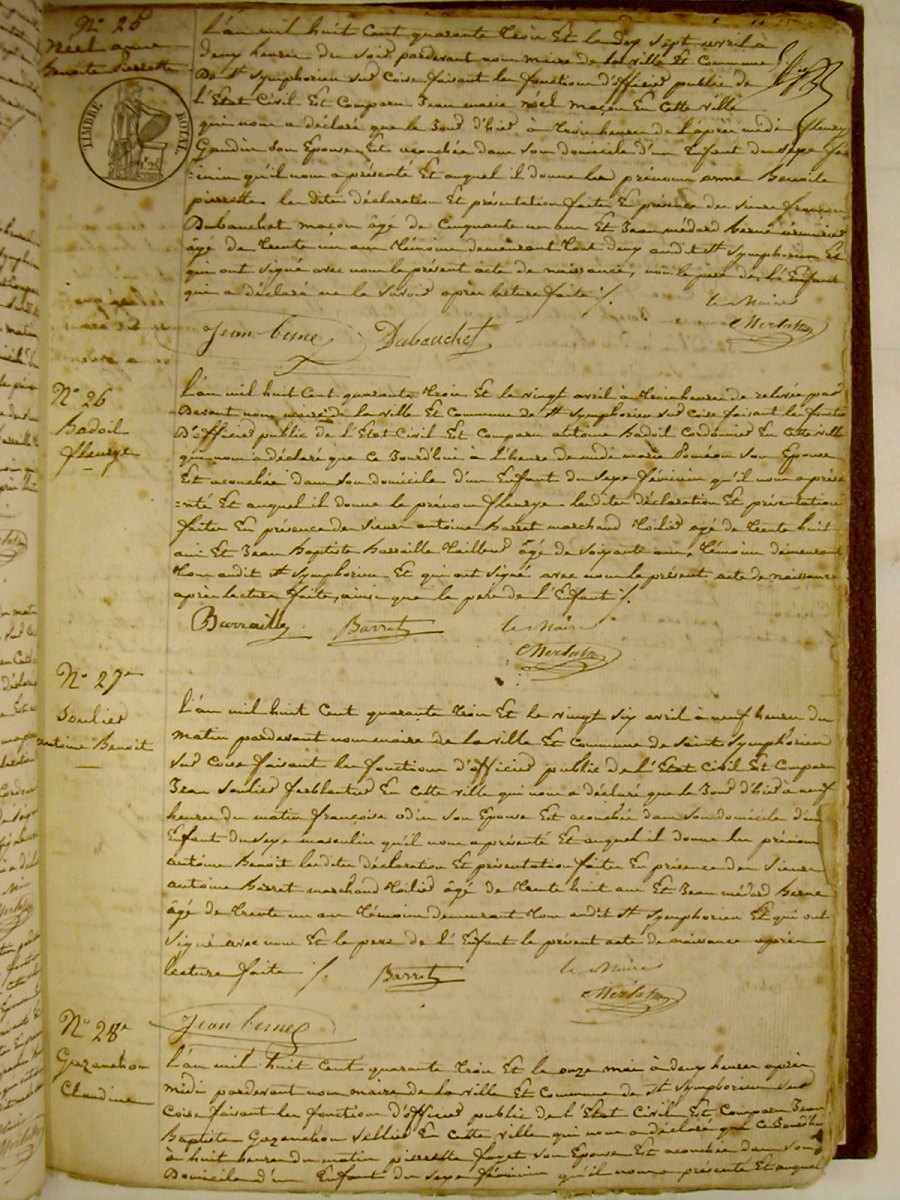 N° 25
Néel anne
Benoite Pierrette
TIMBRE ROYAL
1f 25
L'an mil huit Cent quarante trois Et le dix sept avril à
deux heures du Soir pardevant nous maire de la ville Et Commune
De St Symphorien Sur Coise faisant les fonctions d'officier public de
l'Etat Civil Est Comparu Jean marie néel maçon En Cette ville
qui nous a déclaré que le Jour d'hier à trois heures de l'après midi fleury
Gaudin Son Epouse Est acouchée dans Son domicile d'un Enfant du Sexe fé
=minin qu'il nous a présenté Et auquel il donne les prénoms anne Benoite
pierrette lesdites déclaration Et présentation faites En présence des Sieurs françois
Dubauchet maçon âgé de Cinquante un ans Et Jean médard berne
âgé de trente un ans témoins demeurant tous deux audit St Symphorien Et
qui ont Signé avec nous le présent acte de naissance, non le père de l'Enfant
qui a déclaré ne le Savoir après lecture faite ./.
le Maire
Jean berne Dubauchet
N° 26
Badoil
fleurye
L'an mil huit Cent quarante trois Et le vingt avril à trois heures de relevée par
Devant nous maire de la ville Et Commune de St Symphorien Sur Coise faisant les foncti
D'officier public de l'Etat Civil Est Comparu antoine Badoil Cordonnier En Cette ville
qui nous a déclaré que Ce Jourd'hui à l'heure de midi marie Son Epouse
Est acouchée dans Son domicile d'un Enfant du Sexe féminin qu'il nous a prése
=nté Et auquel il donne le prénom fleurye lesdites déclaration Et présentation
faites En présence des Sieurs antoine Barret marchand toilier agé de trente huit
ans Et Jean Baptiste Barraille tailleur âgé de Soixante ans, témoins demeurant
tous audit St Symphorien Et qui ont Signé avec nous le présent acte de naissance
après lecture faite, ainsi que le père de l'Enfant ./.
Barraille Barret le Maire
N° 27e
Soulier
antoine Benoit
L'an mil huit Cent quarante trois Et le vingt Six avril à neuf heures du
matin pardevant nous maire de la ville Et Commune de Saint Symphorien
Sur Coise faisant les fonctions d'officier public de l'Etat Civil Est Comparu
Jean Soulier ferblantier En Cette ville qui nous a déclaré que le Jour d'hier à neuf
heures du matin françoise odin Son Epouse Est acouchée dans Son domicile d'un
Enfant du Sexe masculin qu'il nous a présenté Et auquel il donne les prénoms
antoine Benoit lesdites déclaration Et présentation faites En présence des Sieurs
antoine Barret marchand toilier âgé de trente huit ans Et Jean médard Berne
âgé de trente un ans témoins demeurant tous audit St Symphorien Et qui ont
Signé avec nous Et le père de l'Enfant le présent acte de naissance après
lecture faite ./. Barret le Maire
Jean berne
N° 28e
Guzanchon
Claudine
L'an mil huit Cent quarante trois Et le onze mai à deux heures après
midi pardevant nous maire de la ville Et Commune de St Symphorien Sur
Coise faisant les fonctions d'officier public de l'Etat Civil Est Comparu Jean
Baptiste Guzanchon Sellier En Cette ville qui nous a déclaré que Ce Jourd'hui
à huit heures du matin pierrette fayet Son Epouse Est acouchée dans Son
Domicile d'un Enfant du Sexe féminin qu'il nous a présenté Et auquel